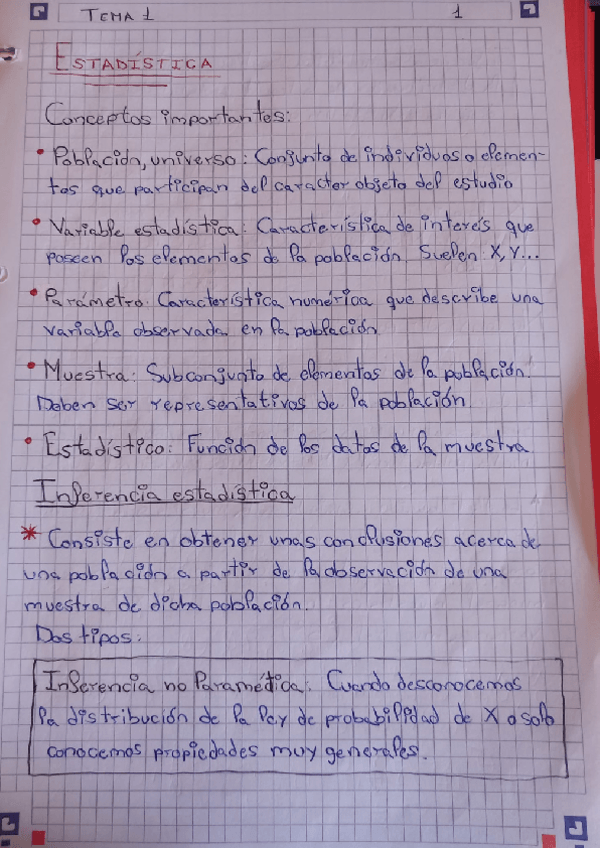 TEMA 1 1
ESTADÍSTICA
Conceptos importantes:
• Población, universo: Conjunto de individuos o elemen-
tos que participan del caracter objeto del estudio
• Variable estadística: Característica de interés que
poseen los elementos de la población. Suelen X, Y...
• Parámetro: Característica numérica que describe una
variable observada en la población
• Muestra: Subconjunto de elementos de la población.
Deben ser representativos de la población
• Estadístico: Función de los datos de la muestra
Inferencia estadística
* Consiste en obtener unas conclusiones acerca de
una población a partir de la observación de una
muestra de dicha población.
Dos tipos:
Inferencia no Paramética: Cuando desconocemos
la distribución de la ley de probabilidad de X o solo
conocemos propiedades muy generales.